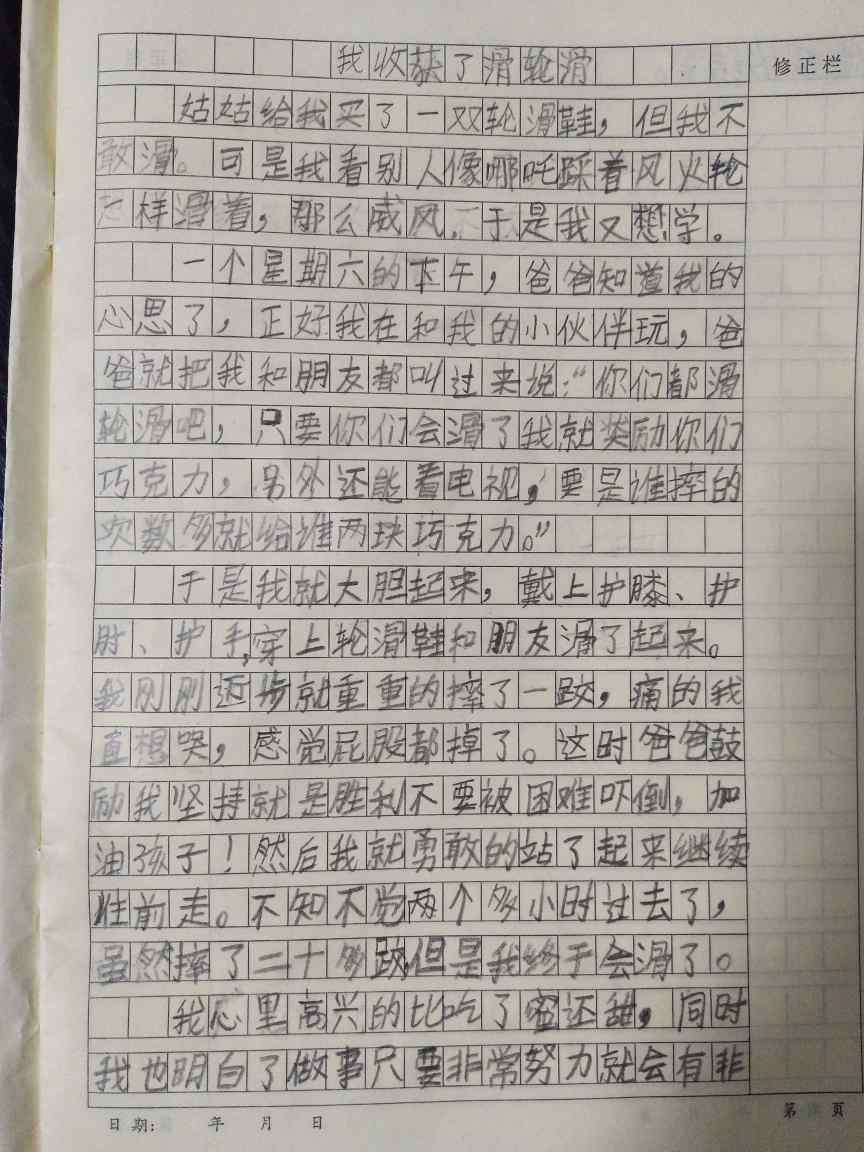 我收获了滑轮滑
修正栏
姑姑给我买了一双轮滑鞋，但我不
敢滑。可是我看别人像哪吒踩着风火轮
一样滑着，那么威风，于是我又想学。
一个星期六的下午，爸爸知道我的
心思了，正好我在和我的小伙伴玩，爸
爸就把我和朋友都叫过来说：“你们都滑
轮滑吧，只要你们会滑了我就奖励你们
巧克力，另外还能看电视，要是谁摔的
次数多就给谁两块巧克力。”
于是我就大胆起来，戴上护膝、护
肘、护手，穿上轮滑鞋和朋友滑了起来。
我刚刚迈步就重重的摔了一跤，痛的我
直想哭，感觉屁股都掉了。这时爸爸鼓
励我坚持就是胜利不要被困难吓倒，加
油孩子！然后我就勇敢的站了起来继续
往前走。不知不觉两个多小时过去了，
虽然摔了二十多跤，但是我终于会滑了。
我心里高兴的比吃了蜜还甜，同时
我也明白了做事只要非常努力就会有非
日期： 年 月 日
第 页